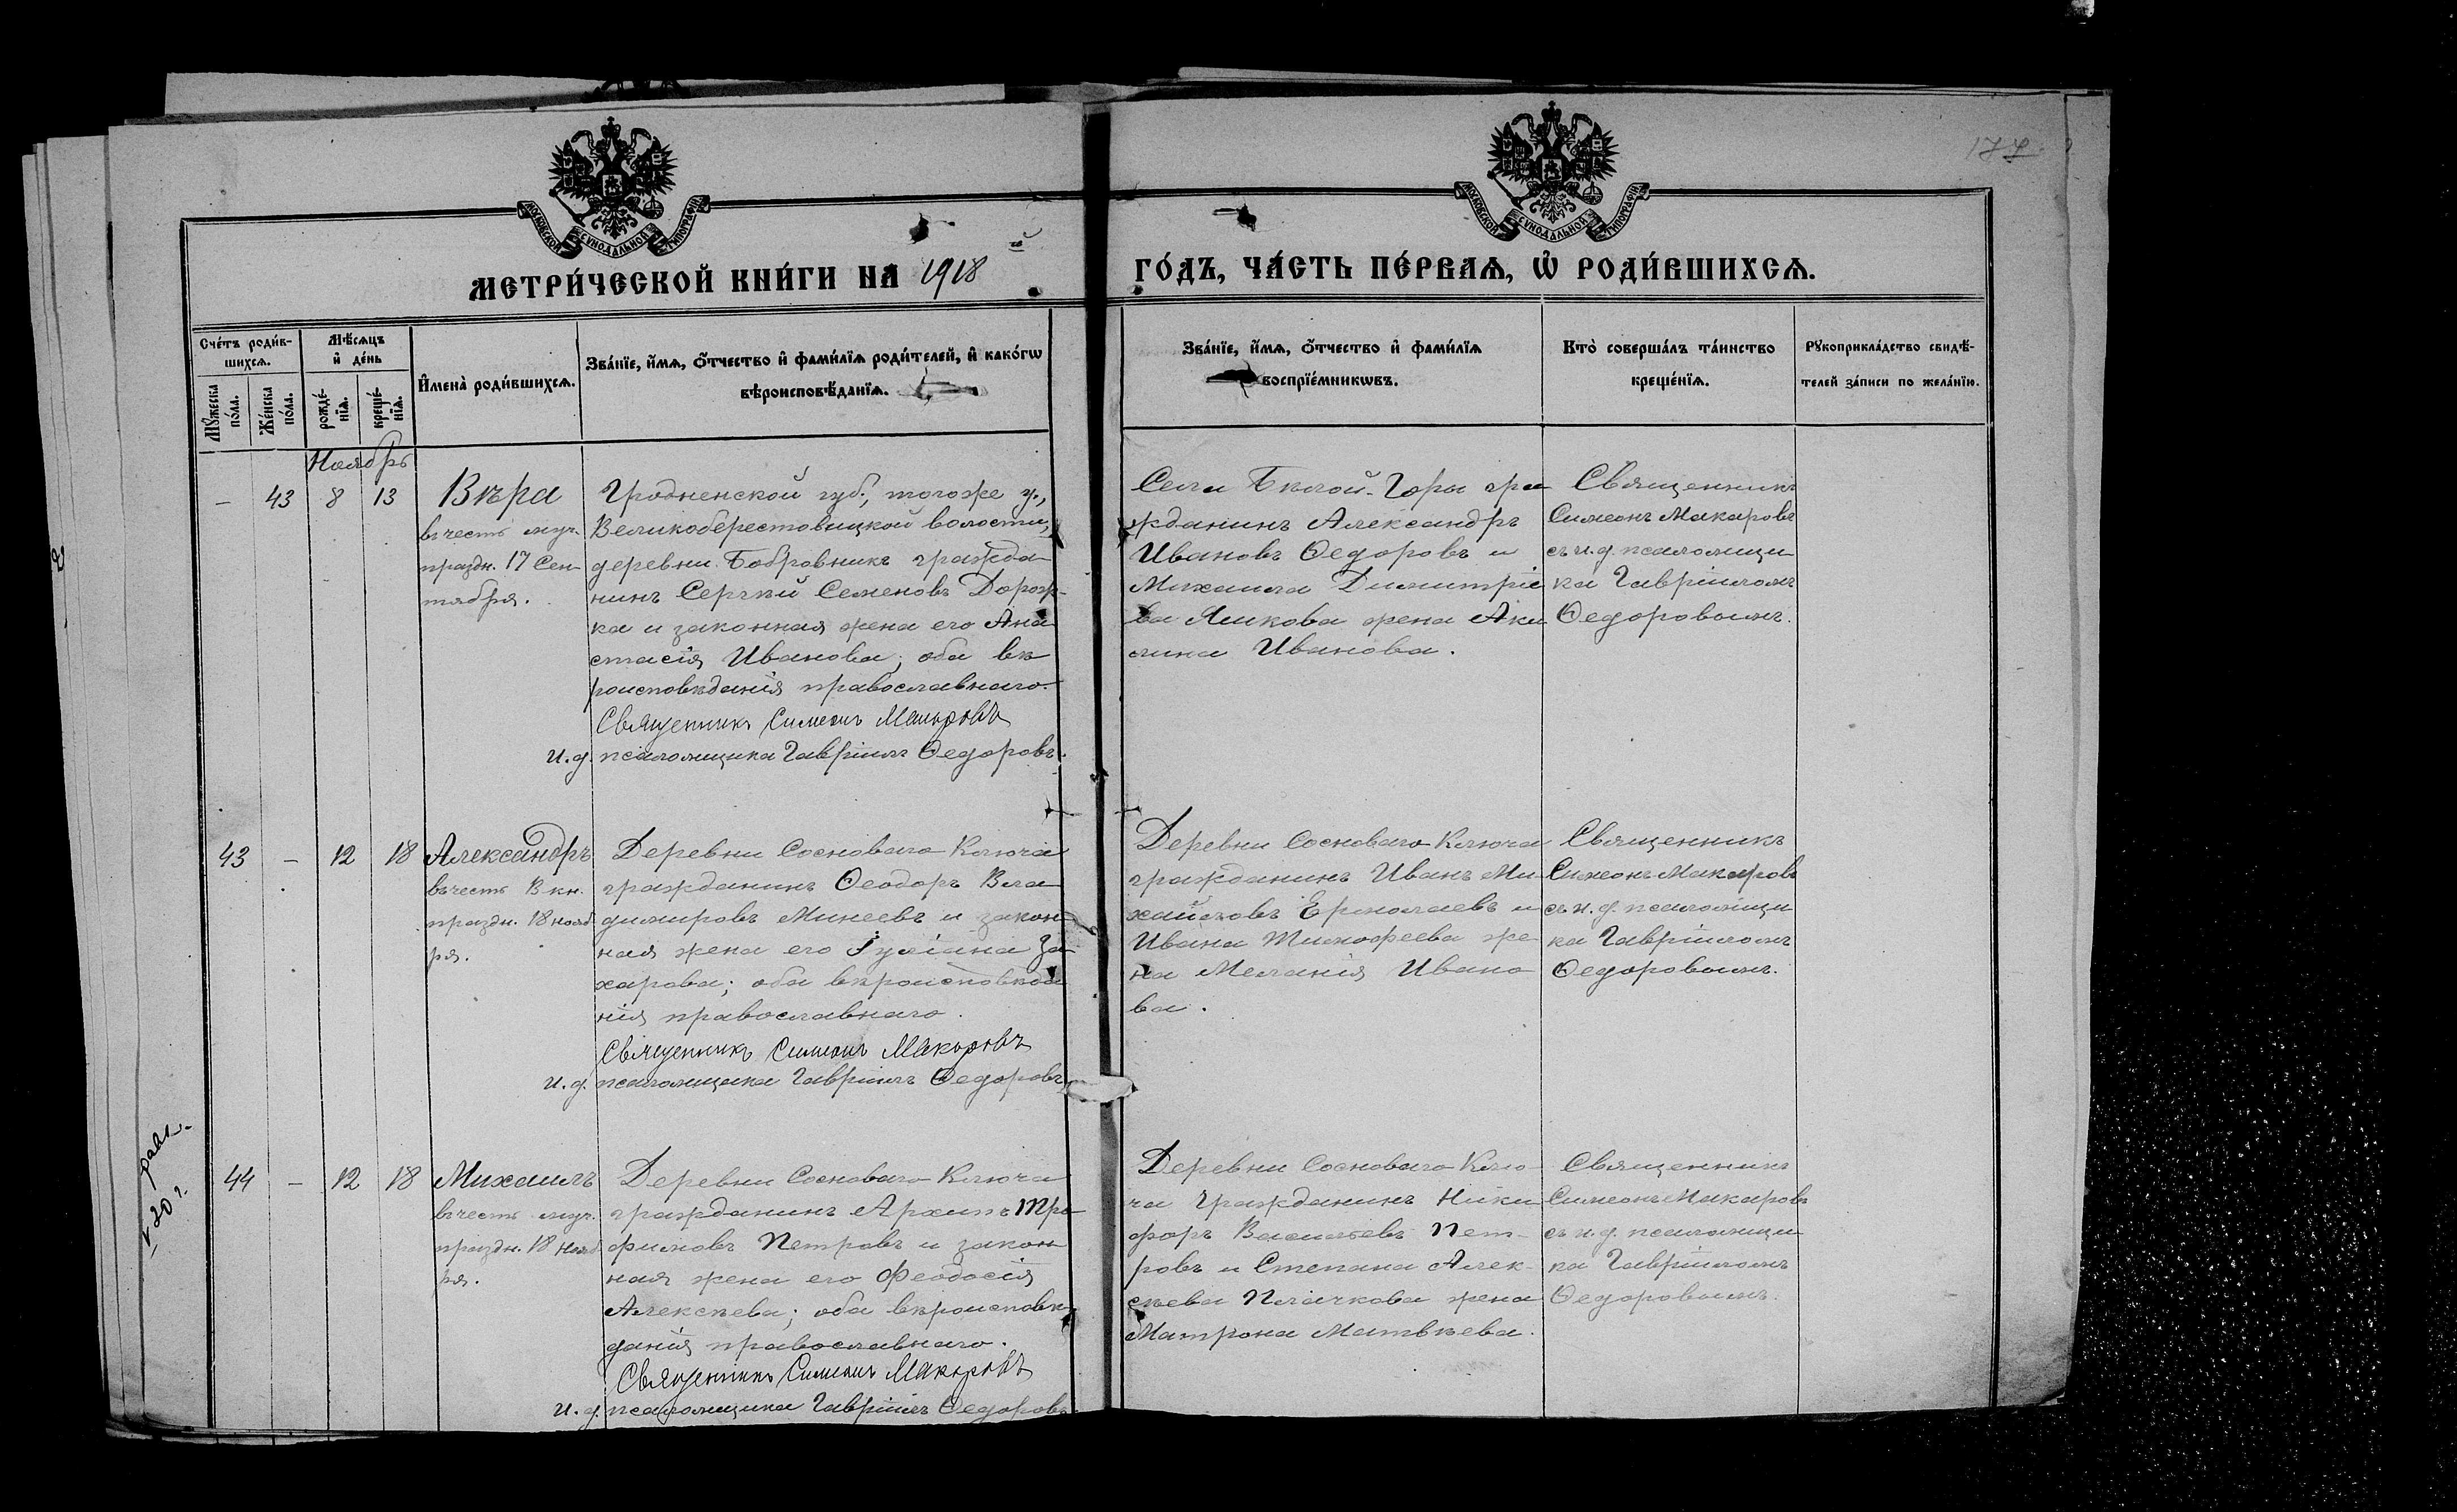 177
МОСКОВСКОЙ СѴНОДАЛЬНОЙ ТИПОГРАФІИ
МОСКОВСКОЙ СѴНОДАЛЬНОЙ ТИПОГРАФІИ
МЕТРИ́ЧЕСКОЙ КНИ́ГИ НА 1918 й
ГО́ДЪ, ЧА́СТЬ ПЕ́РВАѦ, Ѡ РОДИ́ВШИХСѦ.
Сче́тъ роди́в-
шихсѧ.
Мꙋ́жеска по́ла.
Же́нска по́ла.
Мѣ́сѧцъ
и҆ де́нь
рожде́-
нїѧ.
креще́-
нїѧ.
И҆мена̀ роди́вшихсѧ.
Зва́нїе, и҆́мѧ, ѻ҆́тчество и҆ фами́лїѧ роди́телей, и҆ како́гѡ
вѣроисповѣ́данїѧ.
Зва́нїе, и҆́мѧ, ѻ҆́тчество и҆ фами́лїѧ
воспрїе́мникѡвъ.
Кто̀ соверша́лъ та́инство
креще́нїѧ.
Рꙋкоприкла́дство свидѣ́-
телей за́писи по жела́нїю.
Ноябрь
— 43 8 13
Вѣра
въ честь муч.
праздн. 17 Сен-
тября.
Гродненской губ., тогоже у.,
Великоберестовицкой волости,
деревни Бобровникъ гражда-
нинъ Сергѣй Семеновъ Дорож-
ка и законная жена его Ана-
стасія Иванова; оба вѣ-
роисповѣданія православнаго.
Священникъ Симеонъ Макаровъ
и.д. псаломщика Гавріилъ Ѳедоровъ.
Села Бѣлой-Горы гра-
жданинъ Александръ
Ивановъ Ѳедоровъ и
Михаила Димитріе-
ва Ямкова жена Аки-
лина Иванова.
Священникъ
Симеонъ Макаровъ
съ и.д. псаломщи-
ка Гавріиломъ
Ѳедоровымъ.
43 — 12 18
Александръ
въ честь В кн.
праздн. 18 нояб-
ря.
Деревни Сосноваго-Ключа
гражданинъ Ѳеодоръ Вла-
димировъ Минеевъ и закон-
ная жена его Іуліана За-
харова; оба вѣроисповѣда-
нія православнаго.
Священникъ Симеонъ Макаровъ
и.д. псаломщика Гавріилъ Ѳедоровъ
Деревни Сосноваго-Ключа
гражданинъ Иванъ Ми-
хайловъ Ермолаевъ и
Ивана Тимофеева же-
на Меланія Ивано-
ва.
Священникъ
Симеонъ Макаровъ
съ и.д. псаломщи-
ка Гавріиломъ
Ѳедоровымъ.
44 — 12 18
Михаилъ
въ честь муч.
праздн. 18 Нояб-
ря.
Деревни Сосноваго-Ключа
гражданинъ Архипъ Тро-
фимовъ Петровъ и закон-
ная жена его Феодосія
Алексѣева; оба вѣроисповѣ-
данія православнаго.
Священникъ Симеонъ Макаровъ
и.д. псаломщика Гавріилъ Ѳедоровъ.
Деревни Сосноваго-Клю-
ча Гражданинъ Ники-
форъ Васильевъ Пет-
ровъ и Степана Алек-
сѣева Плачкова жена
Матрона Матвѣева.
Священникъ
Симеонъ Макаровъ
съ и.д. псаломщи-
ка Гавріиломъ
Ѳедоровымъ.